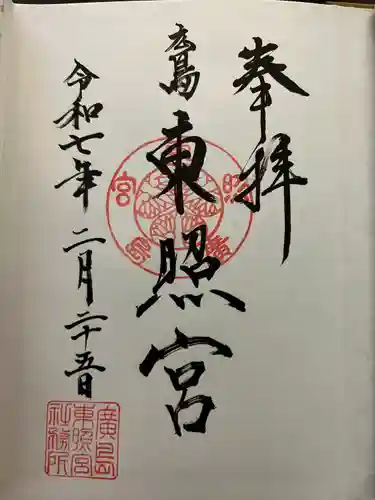 奉拝
広島
東照宮
令和七年二月二十五日
廣島
東照宮
社務所